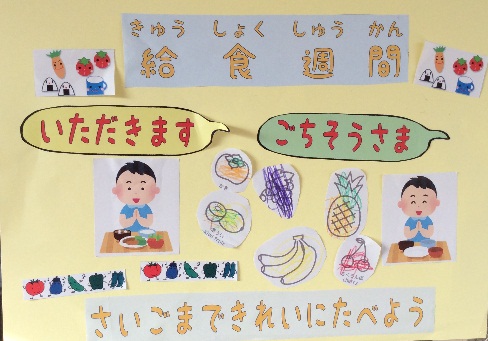 きゅう しょく しゅう かん
給食週間
いただきます
ごちそうさま
かき
さいごまできれいにたべよう